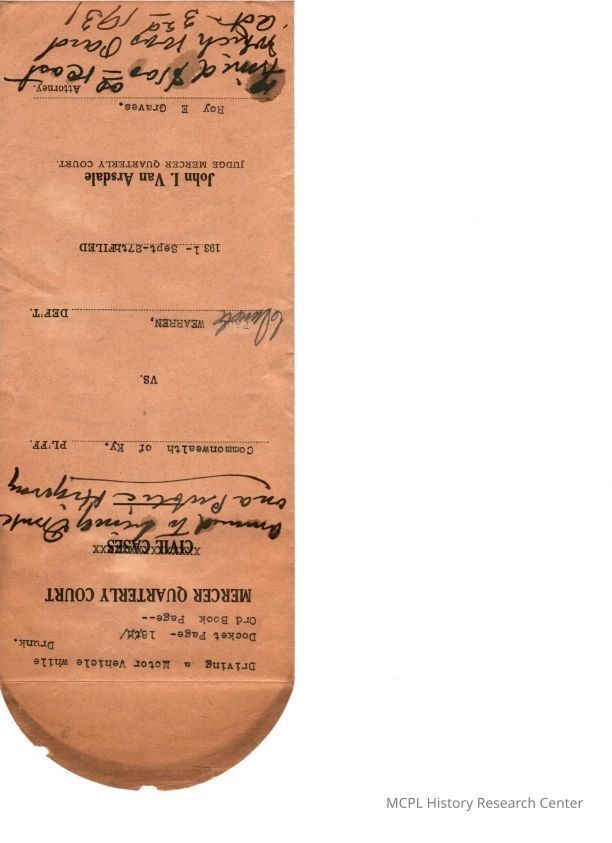 Driving a Motor Vehicle while
Drunk.
Docket Page-
Ord Book Page--
MERCER QUARTERLY COURT
XXXXXXXXXXXXXXX
CIVIL CASES
amend to being Drunk
on a Public Highway
Commonwealth of Ky. PL'FF.
VS.
WEARREN, DEF'T.
193 1- Sept-27th FILED
John I. Van Arsdale
JUDGE MERCER QUARTERLY COURT.
Roy E Graves,
Attorney.
fined $100 & cost
which was Paid
Oct 3rd 1931
MCPL History Research Center